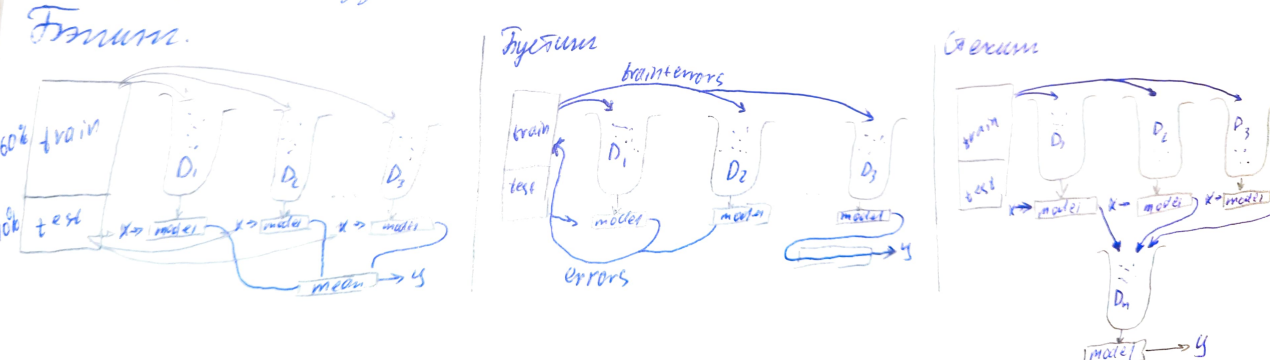 Бэггинг.
60%
train
D₁
D₂
D₃
test
x→ model
x→ model
x→ model
mean → y
Бустинг
train+errors
train
test
D₁
D₂
D₃
model
model
model
→ y
errors
Стекинг
train
test
D₁
D₂
D₃
x→ model
x→ model
x→ model
Dₙ
model → y